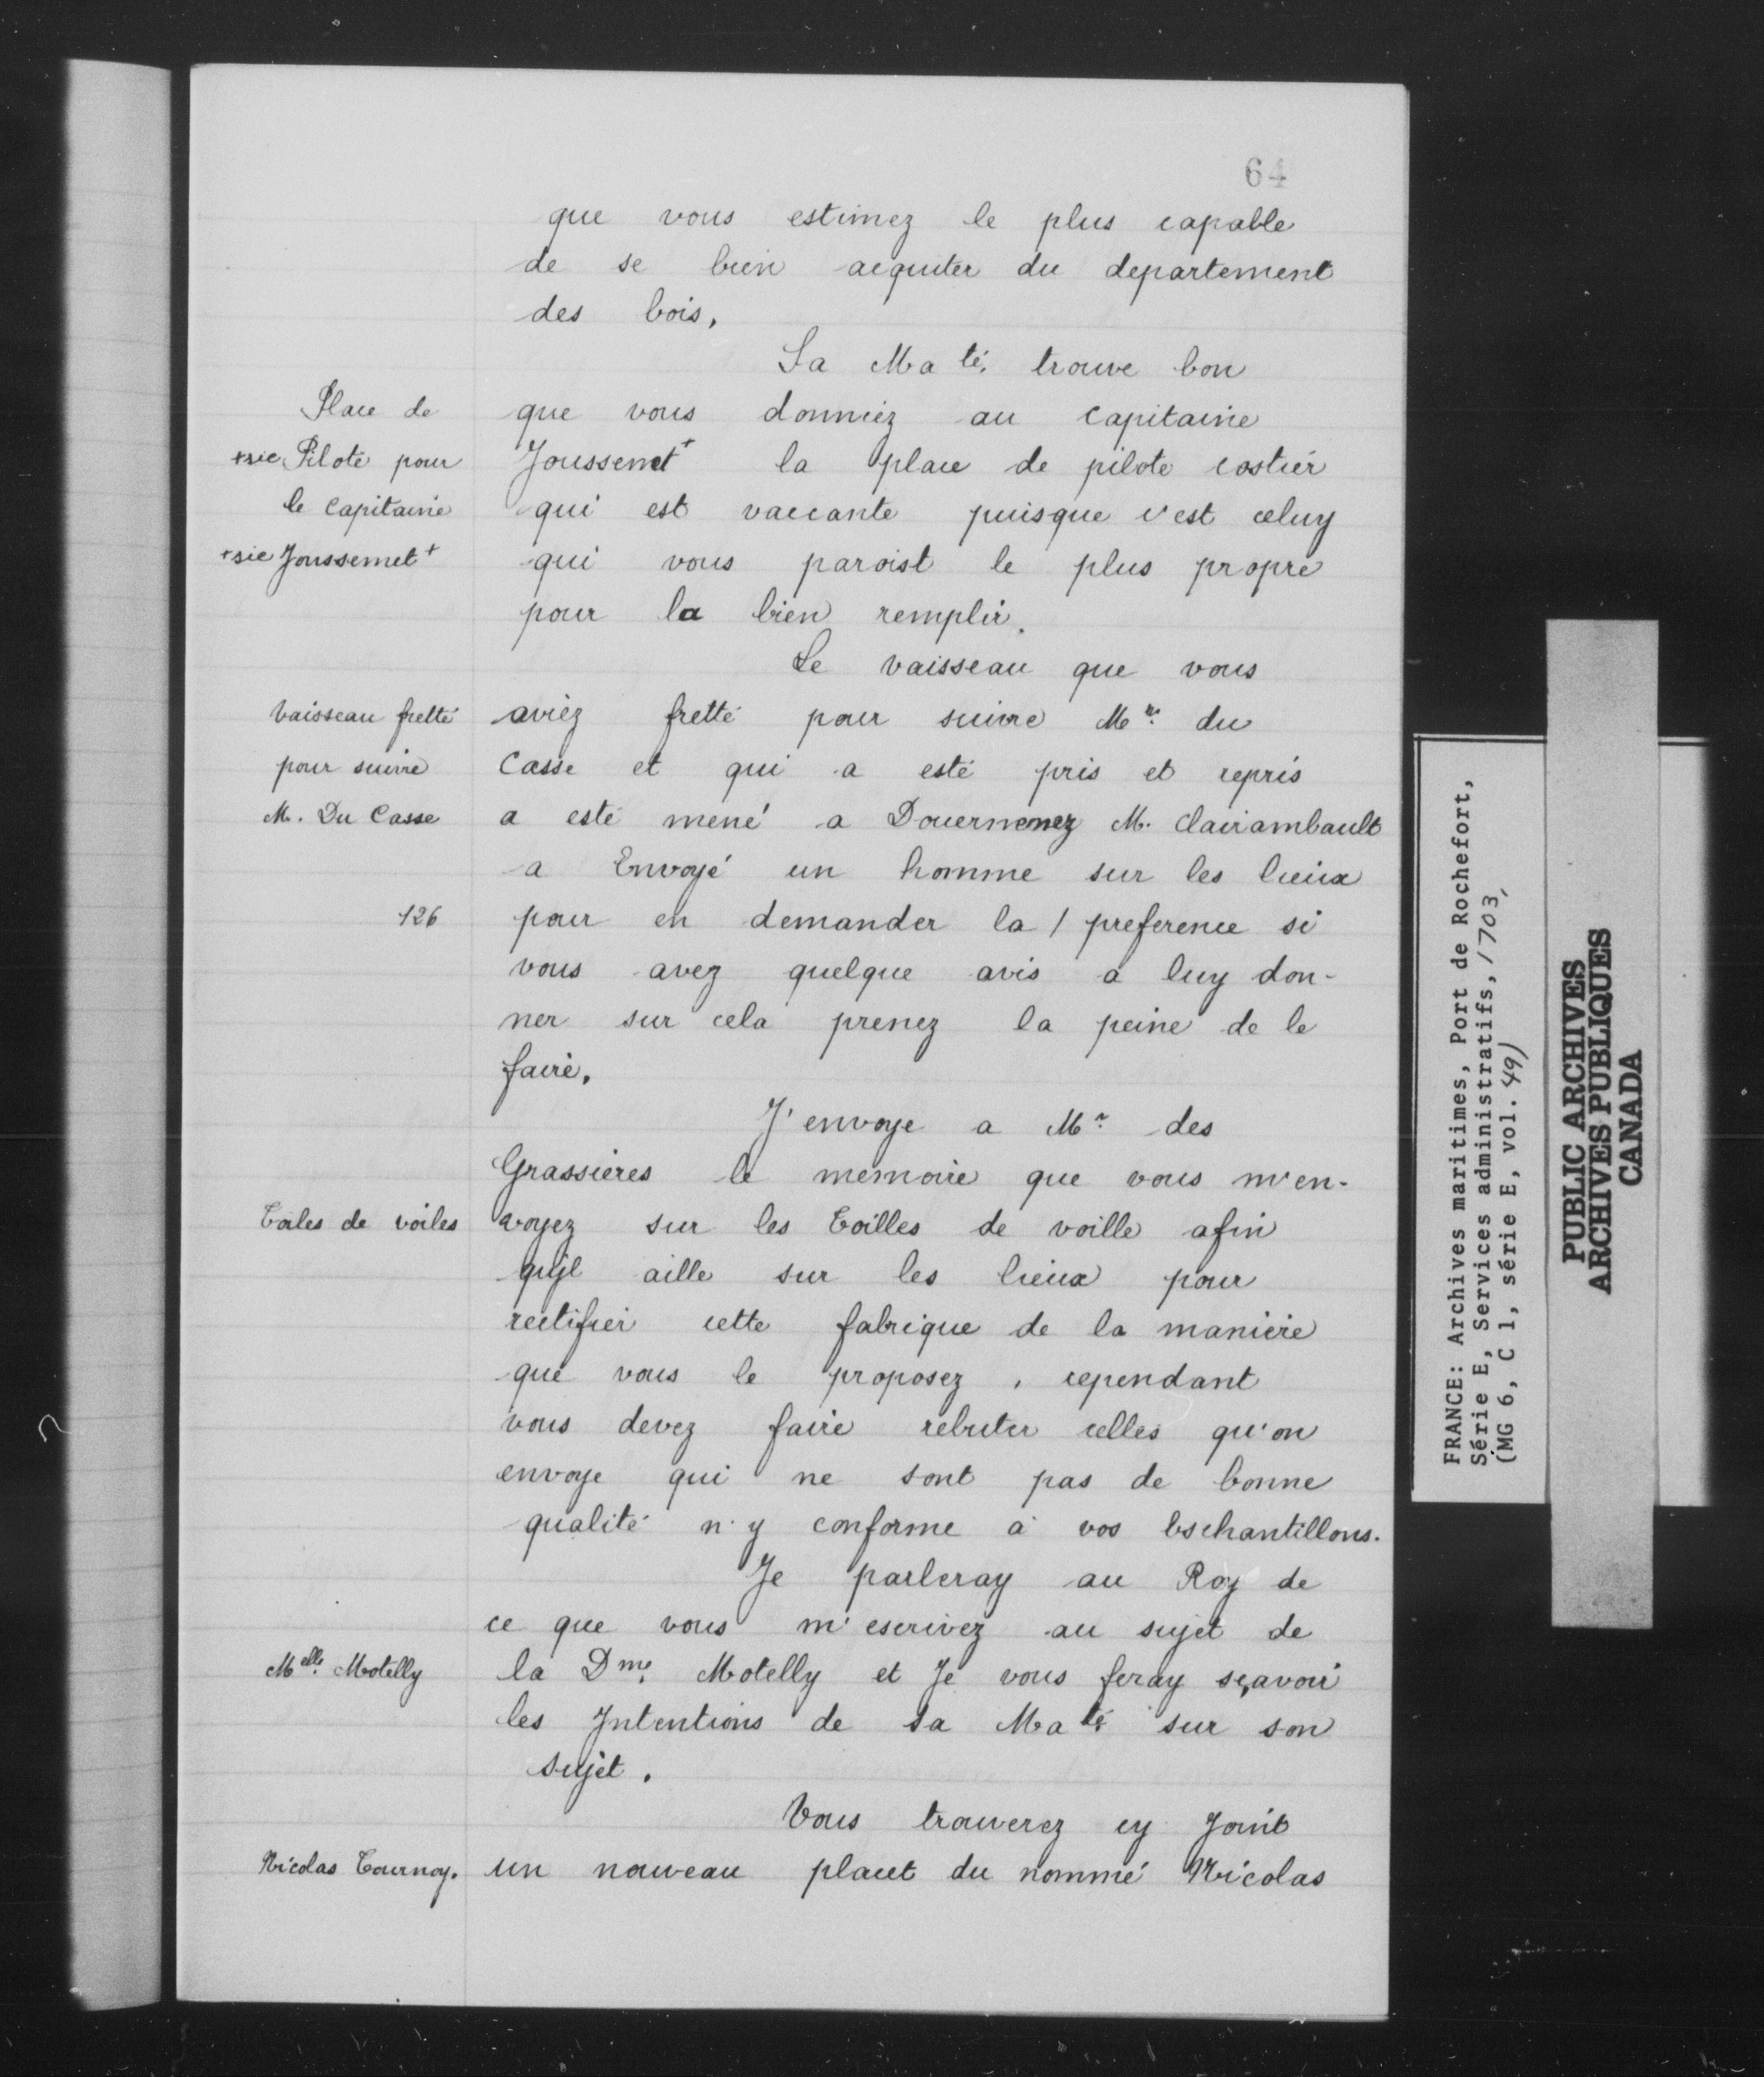 64
que vous estimez le plus capable
de se bien acquiter du departement
des bois,
Sa Ma té. trouve bon
Place de
que vous donniez au capitaine
+sic Pilote pour
Joussemet+ la place de pilote costier
le capitaine
qui est vaccante puisque c'est celuy
+sic Joussemet+
qui vous paroist le plus propre
pour la bien remplir.
Le vaisseau que vous
Vaisseau fretté
aviez fretté pour suivre Mr. du
pour suivre
Casse et qui a esté pris et repris
M. Du Casse
a esté mené a Douernenez M. Clairambault
a Envoyé un homme sur les lieux
126
pour en demander la / preference si
vous avez quelque avis a luy don-
ner sur cela prenez la peine de le
faire.
J'envoye a Mr. des
Grassières le memoire que vous m'en-
Toiles de voiles
voyez sur les Toilles de voille afin
qu'jl aille sur les lieux pour
rectifier cette fabrique de la maniere
que vous le proposez, cependant
vous devez faire rebuter celles qu'on
envoye qui ne sont pas de bonne
qualité n'y conforme a vos Eschantillons.
Je parleray au Roy de
ce que vous m'escrivez au sujet de
Melle. Motelly
la Dme. Motelly et Je vous feray sçavoir
les Intentions de Sa Ma té sur son
sujet.
Vous trouverez cy Joint
Nicolas Tournoy.
un nouveau placet du nommé Nicolas
FRANCE: Archives maritimes, Port de Rochefort,
Série E, Services administratifs, 1703,
(MG 6, C 1, série E, vol. 49)
PUBLIC ARCHIVES
ARCHIVES PUBLIQUES
CANADA